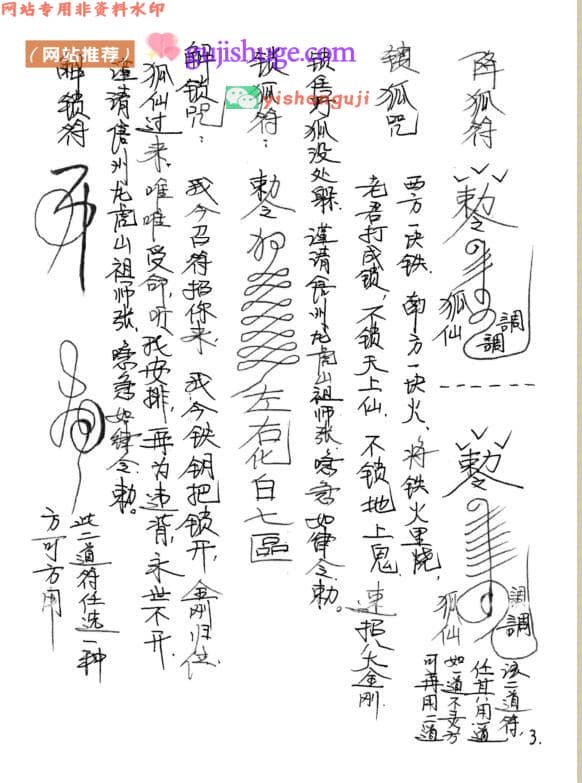 网站专用非资料水印
(网站推荐) gujishuge.com
yishanguji
降狐符
敕令
狐仙
調
調
敕令
狐仙
調
該二道符,
任其用一道
如一道不灵方
可再用一道
锁狐咒
西方一块铁,南方一块火,将铁火里烧,
老君打成锁,不锁天上仙,不锁地上鬼,速招八大金刚
锁住野狐没处躲,谨请信州龙虎山祖师张,唵急如律令勅。
锁狐符:
勅令
左右化白七區
解锁咒:
我今召符招你来,我今铁钥把锁开,金刚归位
狐仙过来,唯唯受命,听我安排,再为违背,永世不开,
谨请信州龙虎山祖师张,唵急如律令勅。
解锁符
此二道符任选一种
方可方用
3.